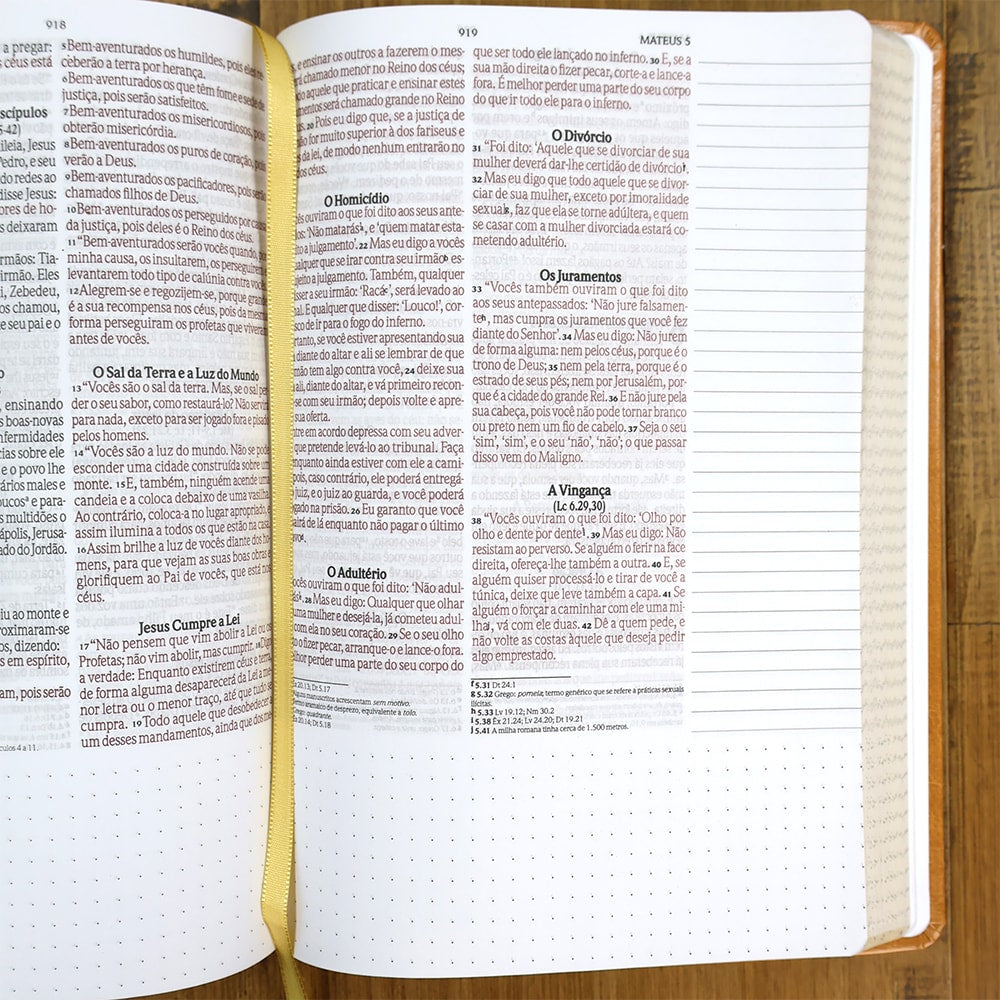 918
a pregar:
céus está
scípulos
5-42)
ileia, Jesus
Pedro, e seu
do redes ao
disse Jesus:
ores de ho-
s deixaram
rmãos: Tia-
irmão. Eles
i, Zebedeu,
os chamou,
seu pai e o
o
, ensinando
s boas-novas
nfermidades
cias sobre ele
e o povo lhe
ários males e
oucosᵃ e para-
s multidões o
ápolis, Jerusa-
ado do Jordão.
iu ao monte e
roximaram-se
s, dizendo:
s em espírito,
am, pois serão
culos 4 a 11.
5Bem-aventurados os humildes, pois eles re-
ceberão a terra por herança.
6Bem-aventurados os que têm fome e sede de
justiça, pois serão satisfeitos.
7Bem-aventurados os misericordiosos, pois
obterão misericórdia.
8Bem-aventurados os puros de coração, pois
verão a Deus.
9Bem-aventurados os pacificadores, pois serão
chamados filhos de Deus.
10Bem-aventurados os perseguidos por causa
da justiça, pois deles é o Reino dos céus.
11“Bem-aventurados serão vocês quando, por
minha causa, os insultarem, os perseguirem
levantarem todo tipo de calúnia contra vocês.
12Alegrem-se e regozijem-se, porque grande
é a sua recompensa nos céus, pois da mesma
forma perseguiram os profetas que viveram
antes de vocês.
O Sal da Terra e a Luz do Mundo
13“Vocês são o sal da terra. Mas, se o sal per-
der o seu sabor, como restaurá-lo? Não servirá
para nada, exceto para ser jogado fora e pisado
pelos homens.
14“Vocês são a luz do mundo. Não se pode
esconder uma cidade construída sobre um
monte. 15E, também, ninguém acende uma
candeia e a coloca debaixo de uma vasilha.
Ao contrário, coloca-a no lugar apropriado, e
assim ilumina a todos os que estão na casa.
16Assim brilhe a luz de vocês diante dos ho-
mens, para que vejam as suas boas obras e
glorifiquem ao Pai de vocês, que está nos
céus.
Jesus Cumpre a Lei
17“Não pensem que vim abolir a Lei ou os
Profetas; não vim abolir, mas cumprir. 18Digo
a verdade: Enquanto existirem céus e terra,
de forma alguma desaparecerá da Lei a me-
nor letra ou o menor traço, até que tudo se
cumpra. 19Todo aquele que desobedecer a
um desses mandamentos, ainda que dos me-
919
MATEUS 5
e ensinar os outros a fazerem o mes-
rá chamado menor no Reino dos céus;
aquele que praticar e ensinar estes
mentos será chamado grande no Reino
us. 20Pois eu digo que, se a justiça de
ão for muito superior à dos fariseus e
da lei, de modo nenhum entrarão no
os céus.
O Homicídio
cês ouviram o que foi dito aos seus ante-
os: ‘Não matarás’ᵃ, e ‘quem matar esta-
o a julgamento’. 22 Mas eu digo a vocês
ualquer que se irar contra seu irmãoᵇ es-
jeito a julgamento. Também, qualquer
isser a seu irmão: ‘Racá’ᶜ, será levado ao
al. E qualquer que disser: ‘Louco!’, cor-
sco de ir para o fogo do inferno.
rtanto, se você estiver apresentando sua
diante do altar e ali se lembrar de que
mão tem algo contra você, 24 deixe sua
ali, diante do altar, e vá primeiro recon-
-se com seu irmão; depois volte e apre-
sua oferta.
ntre em acordo depressa com seu adver-
que pretende levá-lo ao tribunal. Faça
nquanto ainda estiver com ele a cami-
pois, caso contrário, ele poderá entregá-
juiz, e o juiz ao guarda, e você poderá
gado na prisão. 26 Eu garanto que você
airá de lá enquanto não pagar o último
O Adultério
ocês ouviram o que foi dito: ‘Não adul-
28 Mas eu digo: Qualquer que olhar
uma mulher e desejá-la, já cometeu adul-
com ela no seu coração. 29 Se o seu olho
o fizer pecar, arranque-o e lance-o fora.
lhor perder uma parte do seu corpo do
Êx 20.13; Dt 5.17
lguns manuscritos acrescentam sem motivo.
ermo aramaico de desprezo, equivalente a tolo.
Grego: quadrante.
Êx 20.14; Dt 5.18
que ser todo ele lançado no inferno. 30 E, se a
sua mão direita o fizer pecar, corte-a e lance-a
fora. É melhor perder uma parte do seu corpo
do que ir todo ele para o inferno.
O Divórcio
31 “Foi dito: ‘Aquele que se divorciar de sua
mulher deverá dar-lhe certidão de divórcio’ᶠ.
32 Mas eu digo que todo aquele que se divor-
ciar de sua mulher, exceto por imoralidade
sexualᵍ, faz que ela se torne adúltera, e quem
se casar com a mulher divorciada estará co-
metendo adultério.
Os Juramentos
33 “Vocês também ouviram o que foi dito
aos seus antepassados: ‘Não jure falsamen-
teʰ, mas cumpra os juramentos que você fez
diante do Senhor’. 34 Mas eu digo: Não jurem
de forma alguma: nem pelos céus, porque é o
trono de Deus; 35 nem pela terra, porque é o
estrado de seus pés; nem por Jerusalém, por-
que é a cidade do grande Rei. 36 E não jure pela
sua cabeça, pois você não pode tornar branco
ou preto nem um fio de cabelo. 37 Seja o seu
‘sim’, ‘sim’, e o seu ‘não’, ‘não’; o que passar
disso vem do Maligno.
A Vingança
(Lc 6.29,30)
38 “Vocês ouviram o que foi dito: ‘Olho por
olho e dente por dente’ⁱ. 39 Mas eu digo: Não
resistam ao perverso. Se alguém o ferir na face
direita, ofereça-lhe também a outra. 40 E, se
alguém quiser processá-lo e tirar de você a
túnica, deixe que leve também a capa. 41 Se
alguém o forçar a caminhar com ele uma mi-
lhaʲ, vá com ele duas. 42 Dê a quem pede, e
não volte as costas àquele que deseja pedir
algo emprestado.
f 5.31 Dt 24.1
g 5.32 Grego: porneia; termo genérico que se refere a práticas sexuais
ilícitas.
h 5.33 Lv 19.12; Nm 30.2
i 5.38 Êx 21.24; Lv 24.20; Dt 19.21
j 5.41 A milha romana tinha cerca de 1.500 metros.